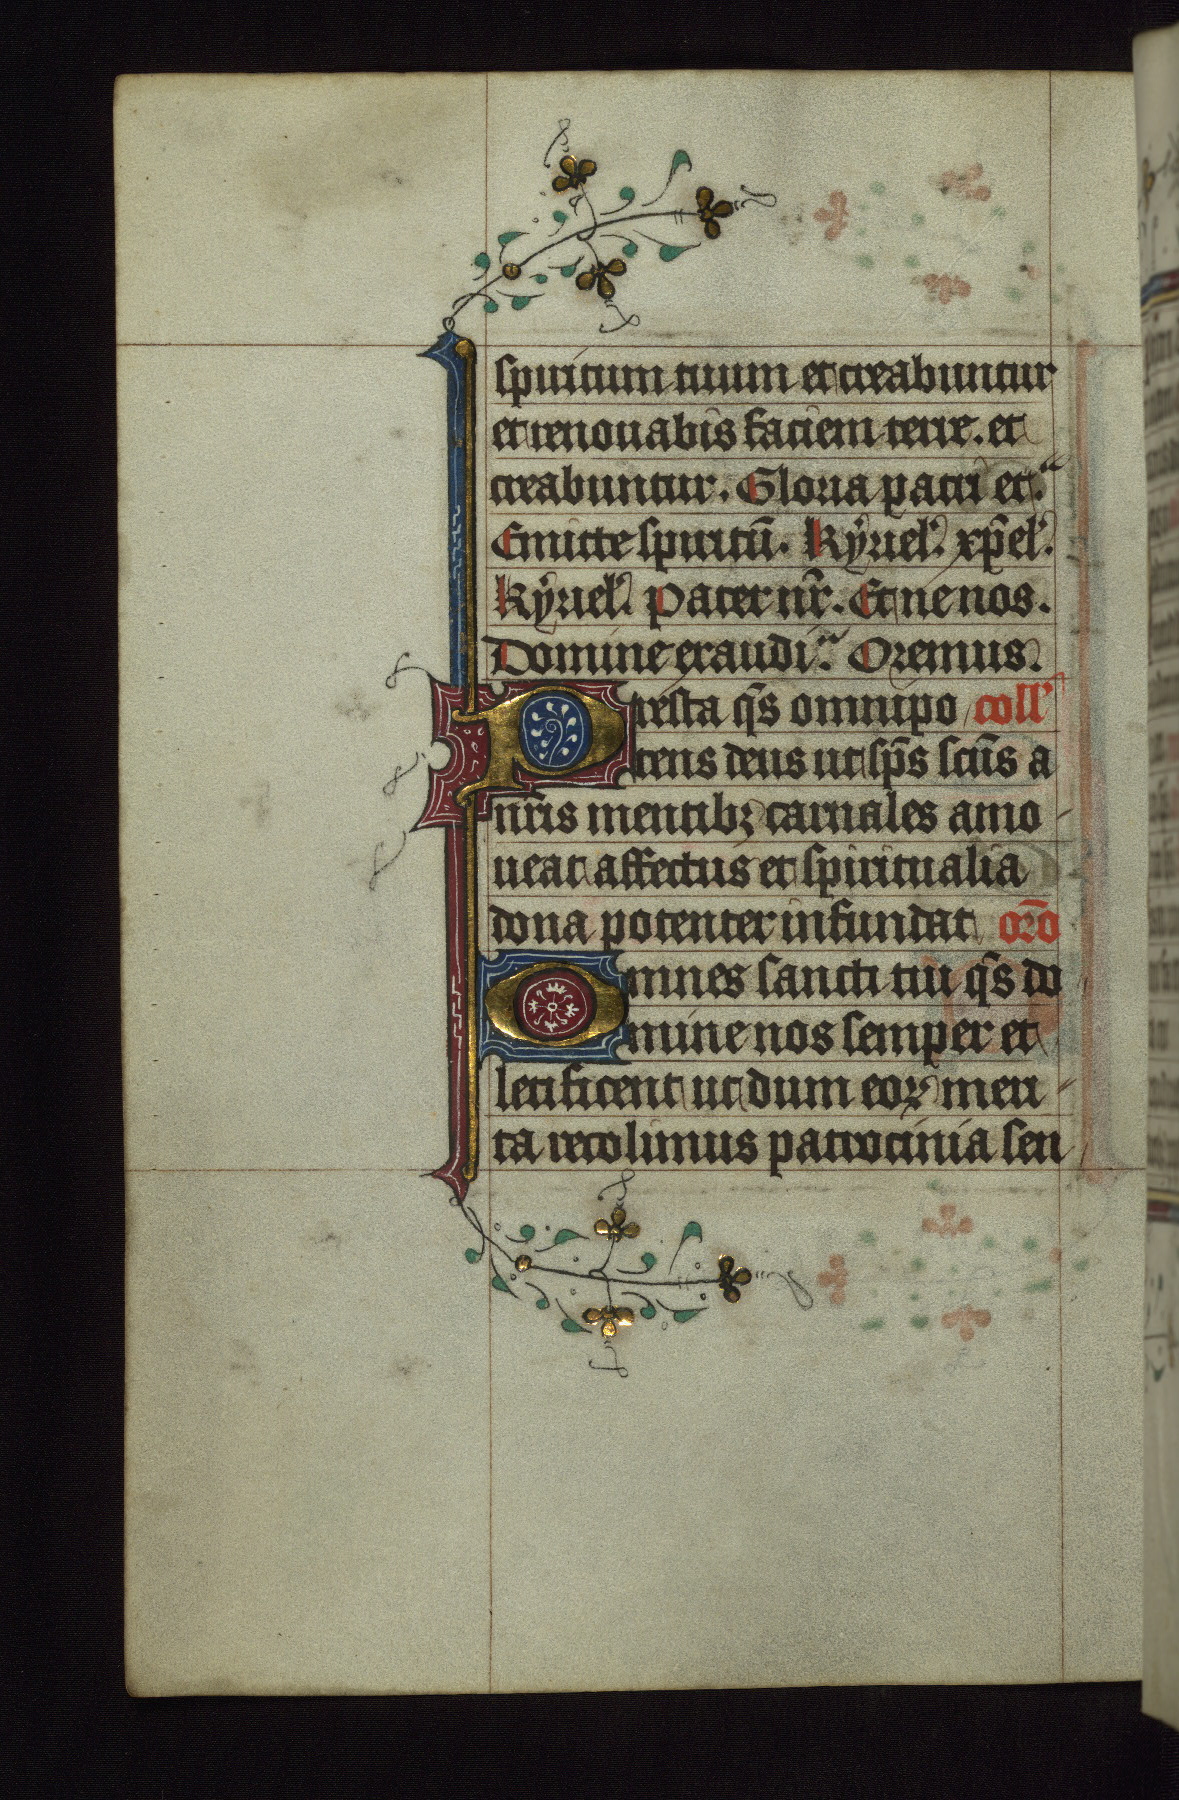 spiritum tuum et creabuntur
et renouabis faciem terre. et
creabuntur. Gloria patri et.
Emitte spiritū. Kyriel'. xp̄el'.
Kyriel'. Pater nr̄. Et ne nos.
Domine exaudi. Oremus.
Presta qs̄ omnipo coll'
tens deus ut sp̄s scūs a
nr̄is mentibꝫ carnales amo
ueat affectus et spiritualia
dona potenter infundat or̄o
Omnes sancti tui qs̄ do
mine nos semper et
letificent ut dum eoꝝ meri
ta recolimus patrocinia sen